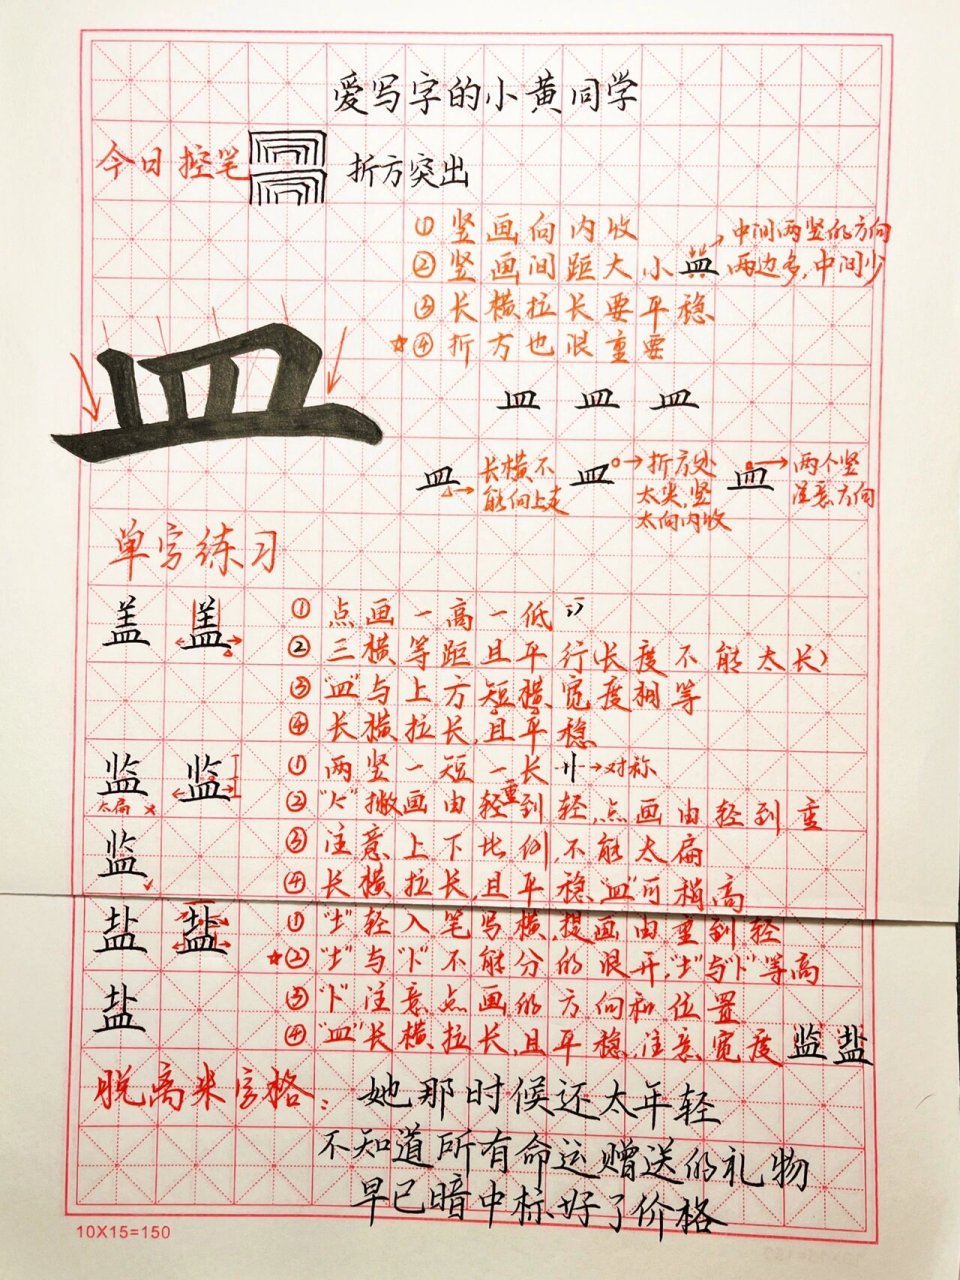 爱写字的小黄同学
今日控笔 折方突出
①竖画向内收
②竖画间距大小 皿 →中间两竖的方向
两边多,中间少
③长横拉长要平稳
☆④折方也很重要
皿
皿 皿 皿
皿→长横不能向上走
皿→折方处太尖,竖太向内收
皿→两个竖注意方向
单字练习
盖 盖 ①点画一高一低
②三横等距且平行(长度不能太长)
③"皿"与上方短横宽度相等
④长横拉长,且平稳
监 监 ①两竖一短一长 →对称
太扁 × ②"𠂉"撇画由重到轻,点画由轻到重
监 ✓ ③注意上下比例,不能太扁
④长横拉长,且平稳,"皿"可稍高
盐 盐 ①"土"轻入笔写横,提画由重到轻
☆②"土"与"卜"不能分的很开,"土"与"卜"等高
盐 ③"卜"注意点画的方向和位置
④"皿"长横拉长,且平稳,注意宽度 监 盐
脱离米字格:她那时候还太年轻
不知道所有命运赠送的礼物
早已暗中标好了价格
10X15=150